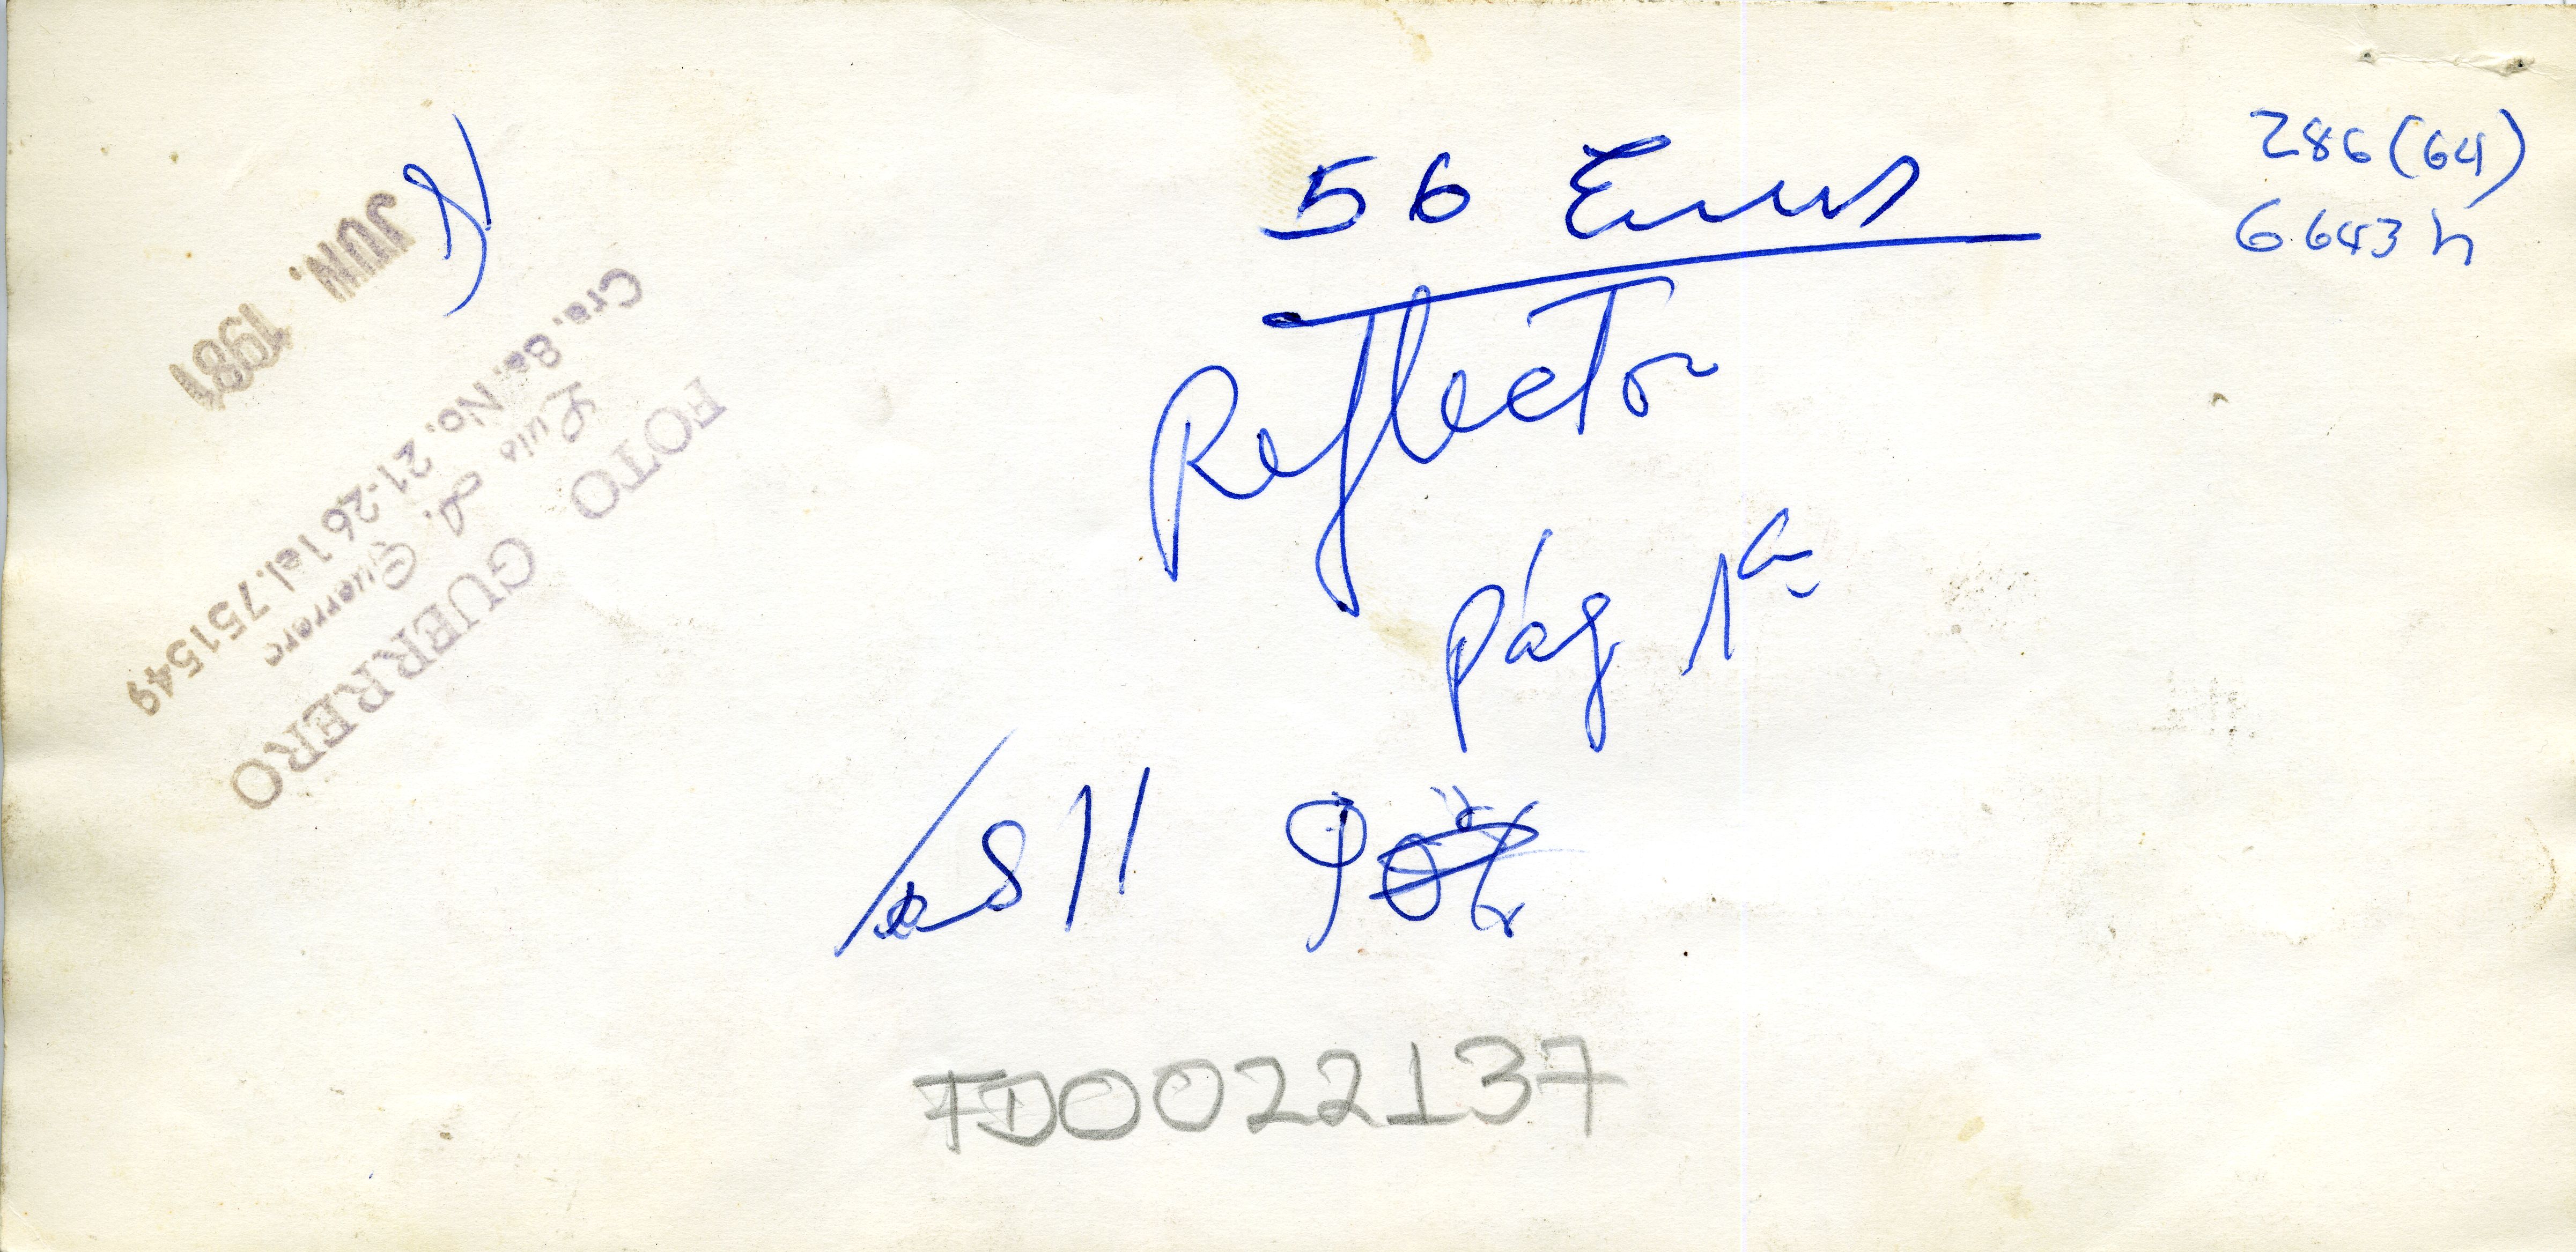 286 (64)
6643 h
56 Ems
Reflector
pág 1ª
11
FD0022137
FOTO GUERRERO
Luis A. Guerrero
Cra. 8a. No. 21-26 Tel. 751549
JUN. 1981